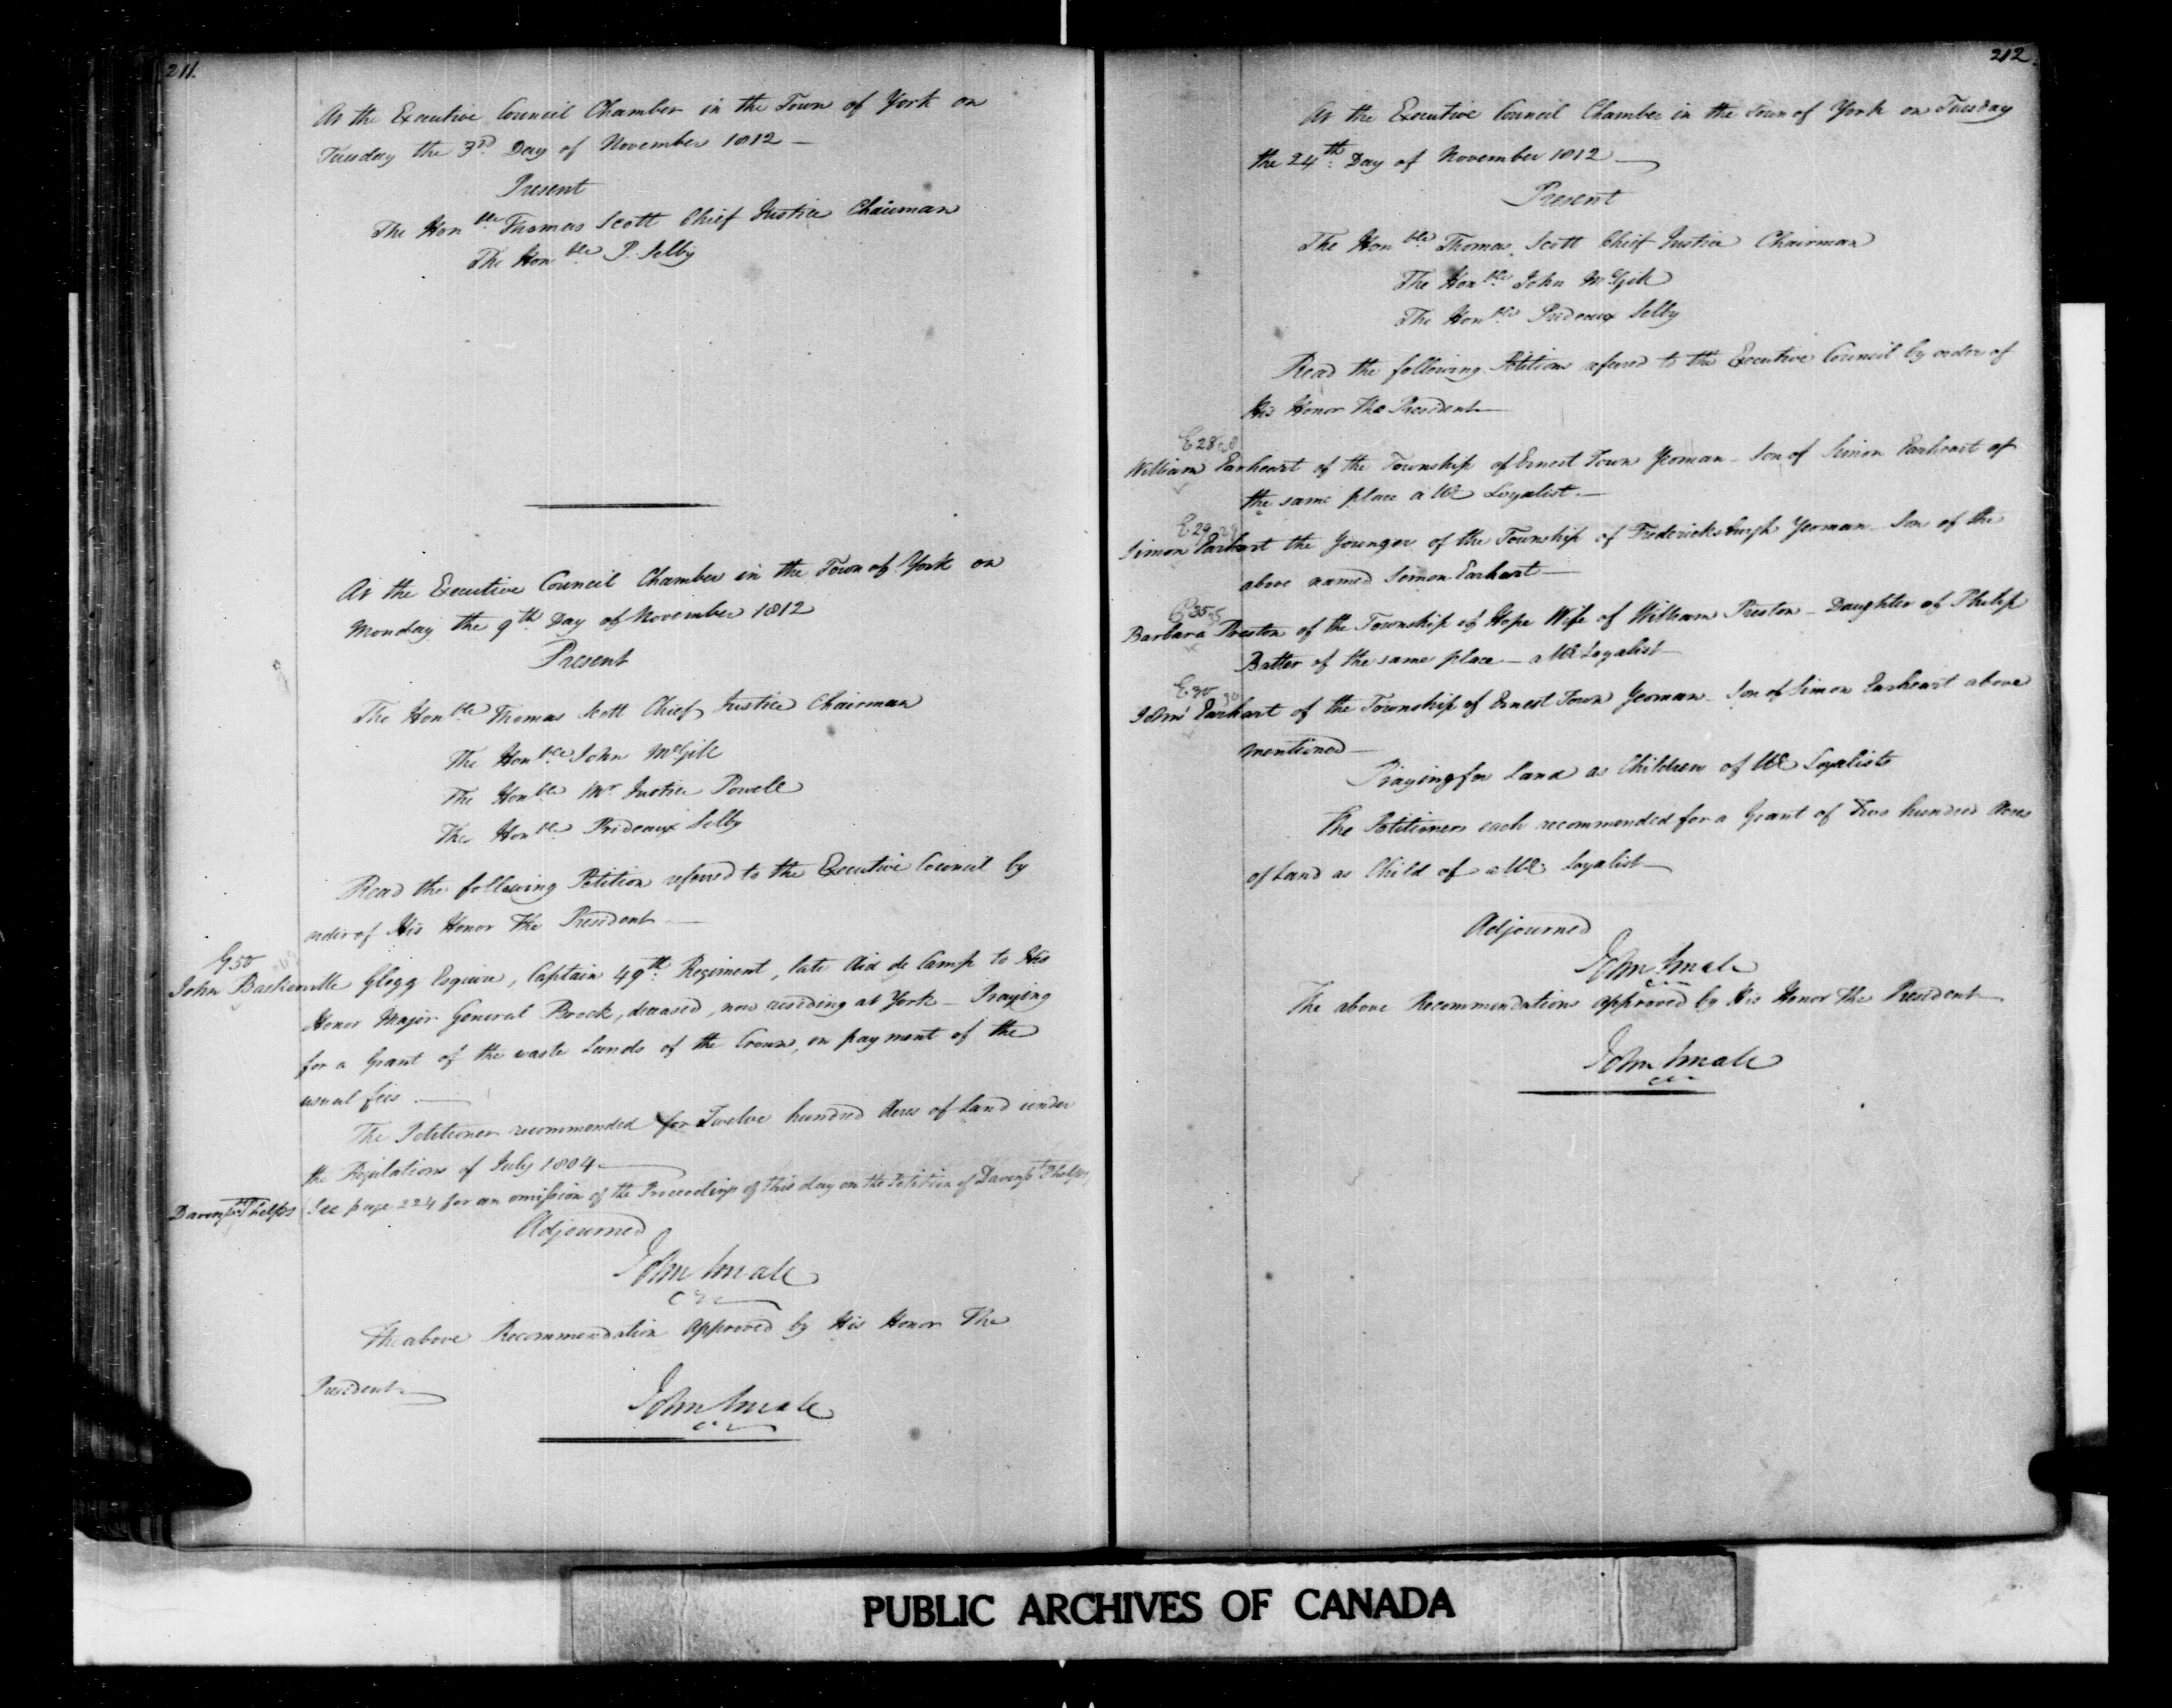 211.
At the Executive Council Chamber in the Town of York on
Tuesday the 3rd Day of November 1812 —
Present
The Honble Thomas Scott Chief Justice Chairman
The Honble P. Selby
At the Executive Council Chamber in the Town of York on
Monday the 9th Day of November 1812
Present
The Honble Thomas Scott Chief Justice Chairman
The Honble John McGill
The Honble Mr Justice Powell
The Honble Prideaux Selby
Read the following Petition referred to the Executive Council by
order of His Honor The President —
G 50
John Baskerville Glegg Esquire, Captain 49th Regiment, late Aid de Camp to His
Honor Major General Brock, deceased, now residing at York — Praying
for a Grant of the waste Lands of the Crown, on payment of the
usual fees. —
The Petitioner recommended for Twelve hundred Acres of Land under
the Regulations of July 1804 —
Davenpt Phelps (See page 224 for an omission of the Proceedings of this day on the Petition of Davenpt Phelps)
Adjourned
John Small
The above Recommendation Approved by His Honor The
President —
John Small
212.
At the Executive Council Chamber in the Town of York on Tuesday
the 24th Day of November 1812 —
Present
The Honble Thomas Scott Chief Justice Chairman
The Honble John McGill
The Honble Prideaux Selby
Read the following Petitions referred to the Executive Council by order of
His Honor The President —
E 28
William Earheart of the Township of Ernest Town Yeoman — Son of Simon Earheart of
the same place a UE Loyalist. —
E 29
Simon Earhart the Younger of the Township of Fredericksburgh Yeoman — Son of the
above named Simon Earhart —
P 35
Barbara Preston of the Township of Hope Wife of William Preston — Daughter of Philip
Batter of the same place — a UE Loyalist —
E 30
Earhart of the Township of Ernest Town Yeoman — Son of Simon Earheart above
mentioned —
Praying for Land as Children of UE Loyalists
The Petitioners each recommended for a Grant of Two hundred Acres
of Land as Child of a UE Loyalist —
Adjourned
John Small
The above Recommendations approved by His Honor The President —
John Small
PUBLIC ARCHIVES OF CANADA